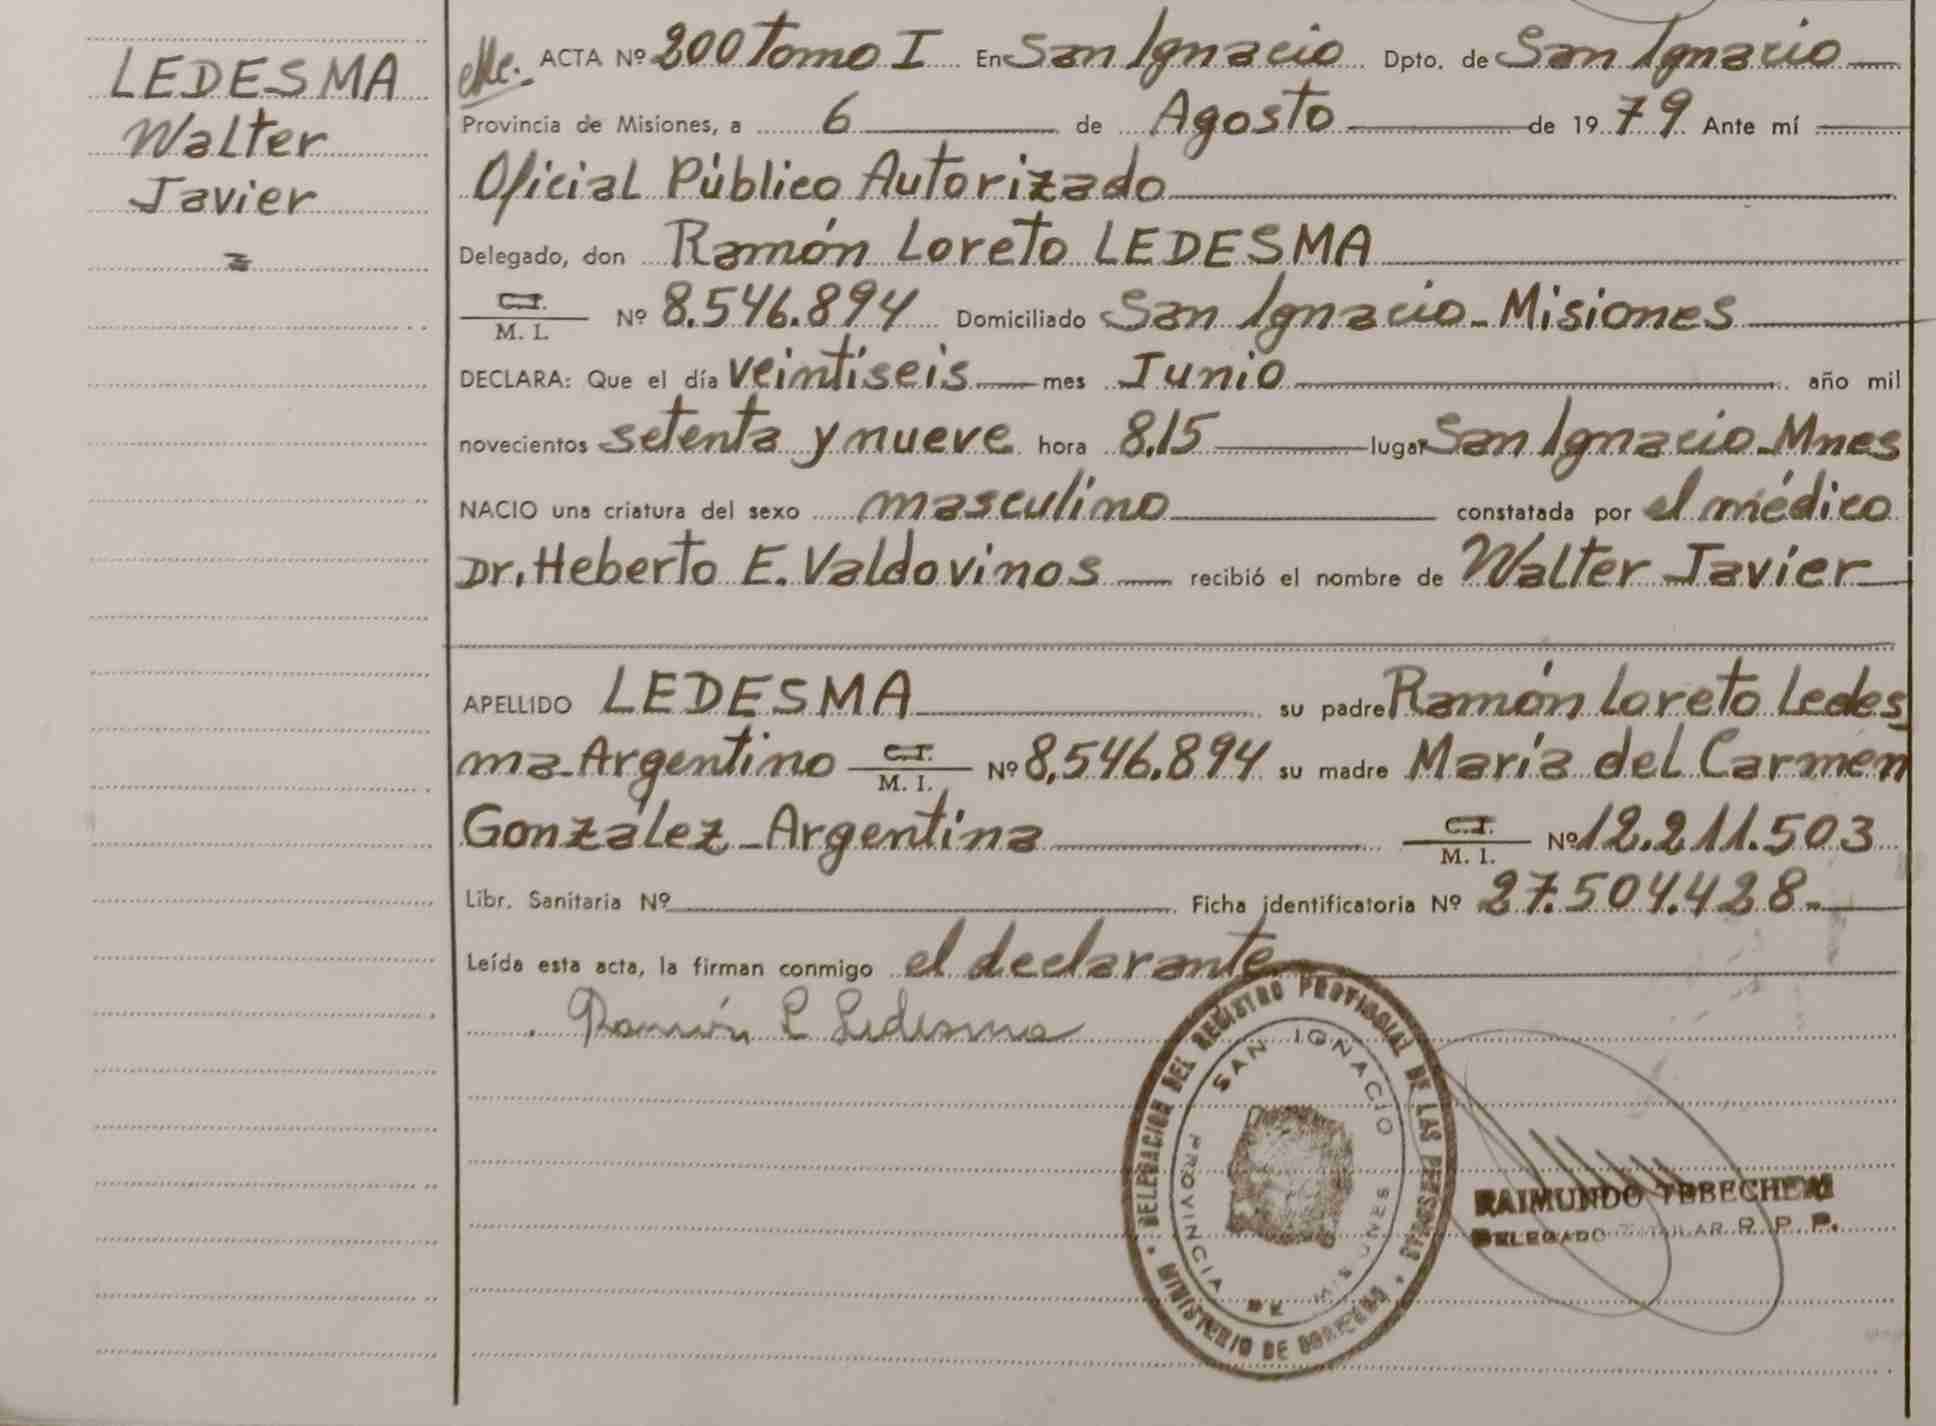 LEDESMA
Walter
Javier
ACTA Nº 200 Tomo I En San Ignacio Dpto. de San Ignacio
Provincia de Misiones, a 6 de Agosto de 1979 Ante mí
Oficial Público Autorizado
Delegado, don Ramón Loreto LEDESMA
C.I.
M. I. Nº 8.546.894 Domiciliado San Ignacio - Misiones
DECLARA: Que el día veintiseis mes Junio año mil
novecientos setenta y nueve hora 8,15 lugar San Ignacio - Mnes
NACIO una criatura del sexo masculino constatada por el médico
Dr. Heberto E. Valdovinos recibió el nombre de Walter Javier
APELLIDO LEDESMA su padre Ramón Loreto Ledes
ma - Argentino C.I. M. I. Nº 8.546.894 su madre María del Carmen
González - Argentina C.I. M. I. Nº 12.211.503
Libr. Sanitaria Nº Ficha identificatoria Nº 27.504.428.-
Leída esta acta, la firman conmigo el declarante
Ramón L Ledesma
DELEGACION DEL REGISTRO PROVINCIAL DE LAS PERSONAS
SAN IGNACIO
PROVINCIA DE MISIONES
MINISTERIO DE GOBIERNO
RAIMUNDO
DELEGADO TITULAR R. P. P.